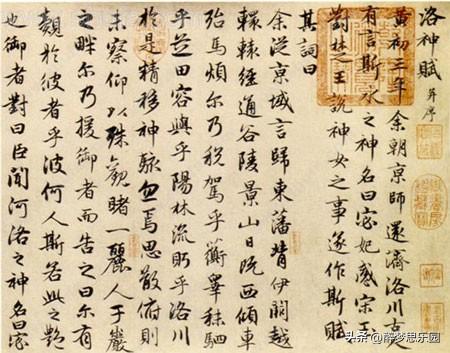 洛神賦 并序
黃初三年余朝京師還濟洛川古人
有言斯水之神名曰宓妃感宋玉
對楚王說神女之事遂作斯賦
其詞曰
余從京域言歸東藩背伊闕越
轘轅經通谷陵景山日既西傾車
殆馬煩尔乃稅駕乎蘅皋秣駟
乎芝田容與乎陽林流眄乎洛川
於是精移神駭忽焉思散俯則
未察仰以殊觀睹一麗人于巖
之畔尔乃援御者而告之曰尔有
覿於彼者乎彼何人斯若此之艷
也御者對曰臣聞河洛之神名曰宓
头条 @醉梦思乐园